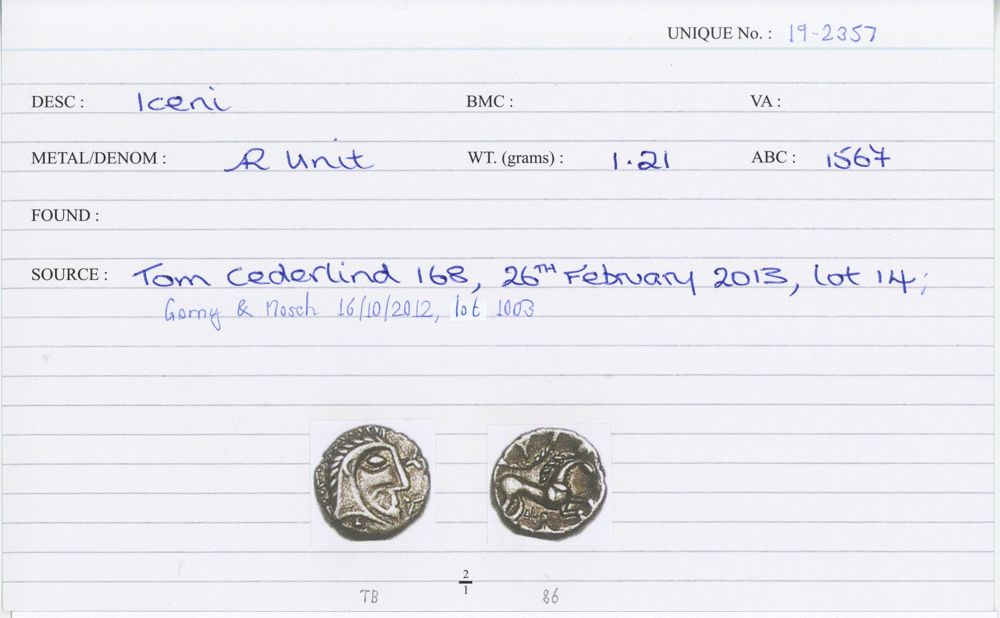 UNIQUE No. : 19-2357
DESC : Iceni BMC : VA :
METAL/DENOM : AR Unit WT. (grams) : 1.21 ABC : 1567
FOUND :
SOURCE : Tom Cederlind 168, 26TH February 2013, lot 14;
Gorny & Mosch 16/10/2012, lot 1003
2/1
TB 86